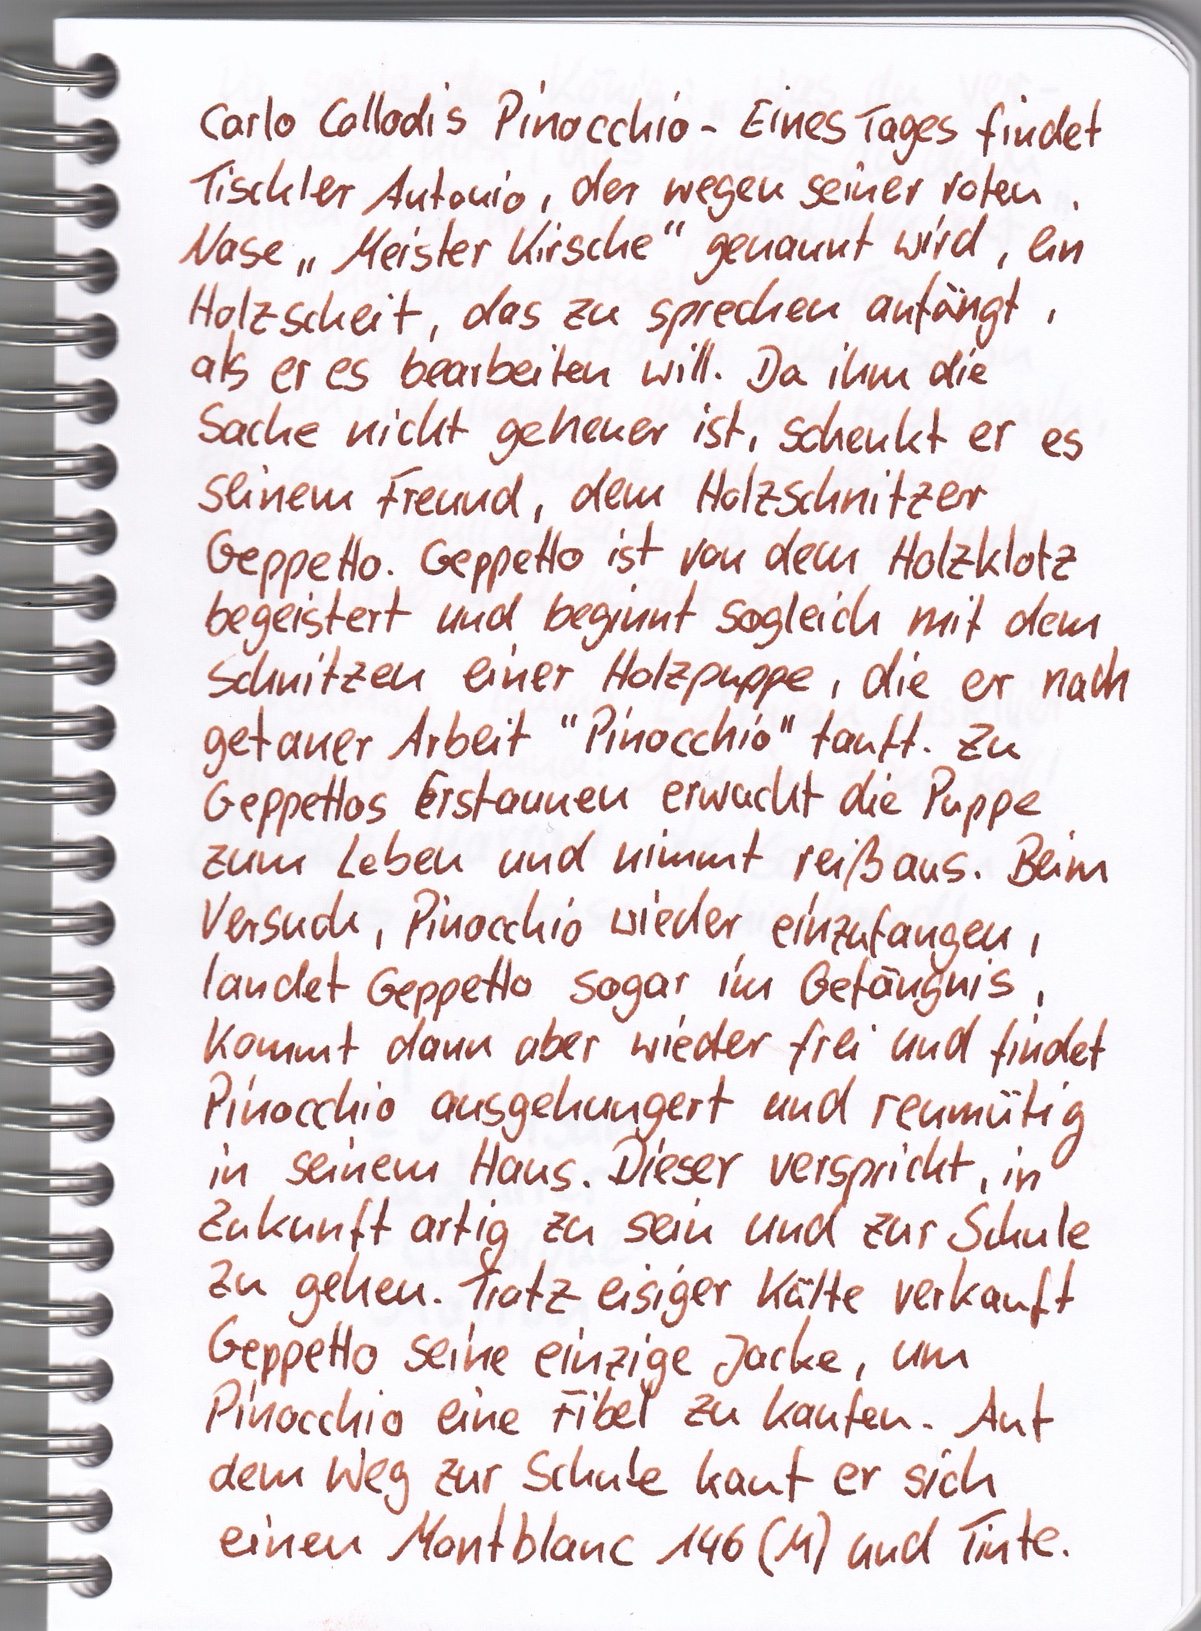 Carlo Collodis Pinocchio - Eines Tages findet
Tischler Antonio, der wegen seiner roten
Nase „Meister Kirsche“ genannt wird, ein
Holzscheit, das zu sprechen anfängt,
als er es bearbeiten will. Da ihm die
Sache nicht geheuer ist, schenkt er es
seinem Freund, dem Holzschnitzer
Geppetto. Geppetto ist von dem Holzklotz
begeistert und beginnt sogleich mit dem
Schnitzen einer Holzpuppe, die er nach
getaner Arbeit "Pinocchio" tauft. Zu
Geppettos Erstaunen erwacht die Puppe
zum Leben und nimmt reißaus. Beim
Versuch, Pinocchio wieder einzufangen,
landet Geppetto sogar im Gefängnis,
kommt dann aber wieder frei und findet
Pinocchio ausgehungert und reumütig
in seinem Haus. Dieser verspricht, in
Zukunft artig zu sein und zur Schule
zu gehen. Trotz eisiger Kälte verkauft
Geppetto seine einzige Jacke, um
Pinocchio eine Fibel zu kaufen. Auf
dem Weg zur Schule kauft er sich
einen Montblanc 146 (M) und Tinte.